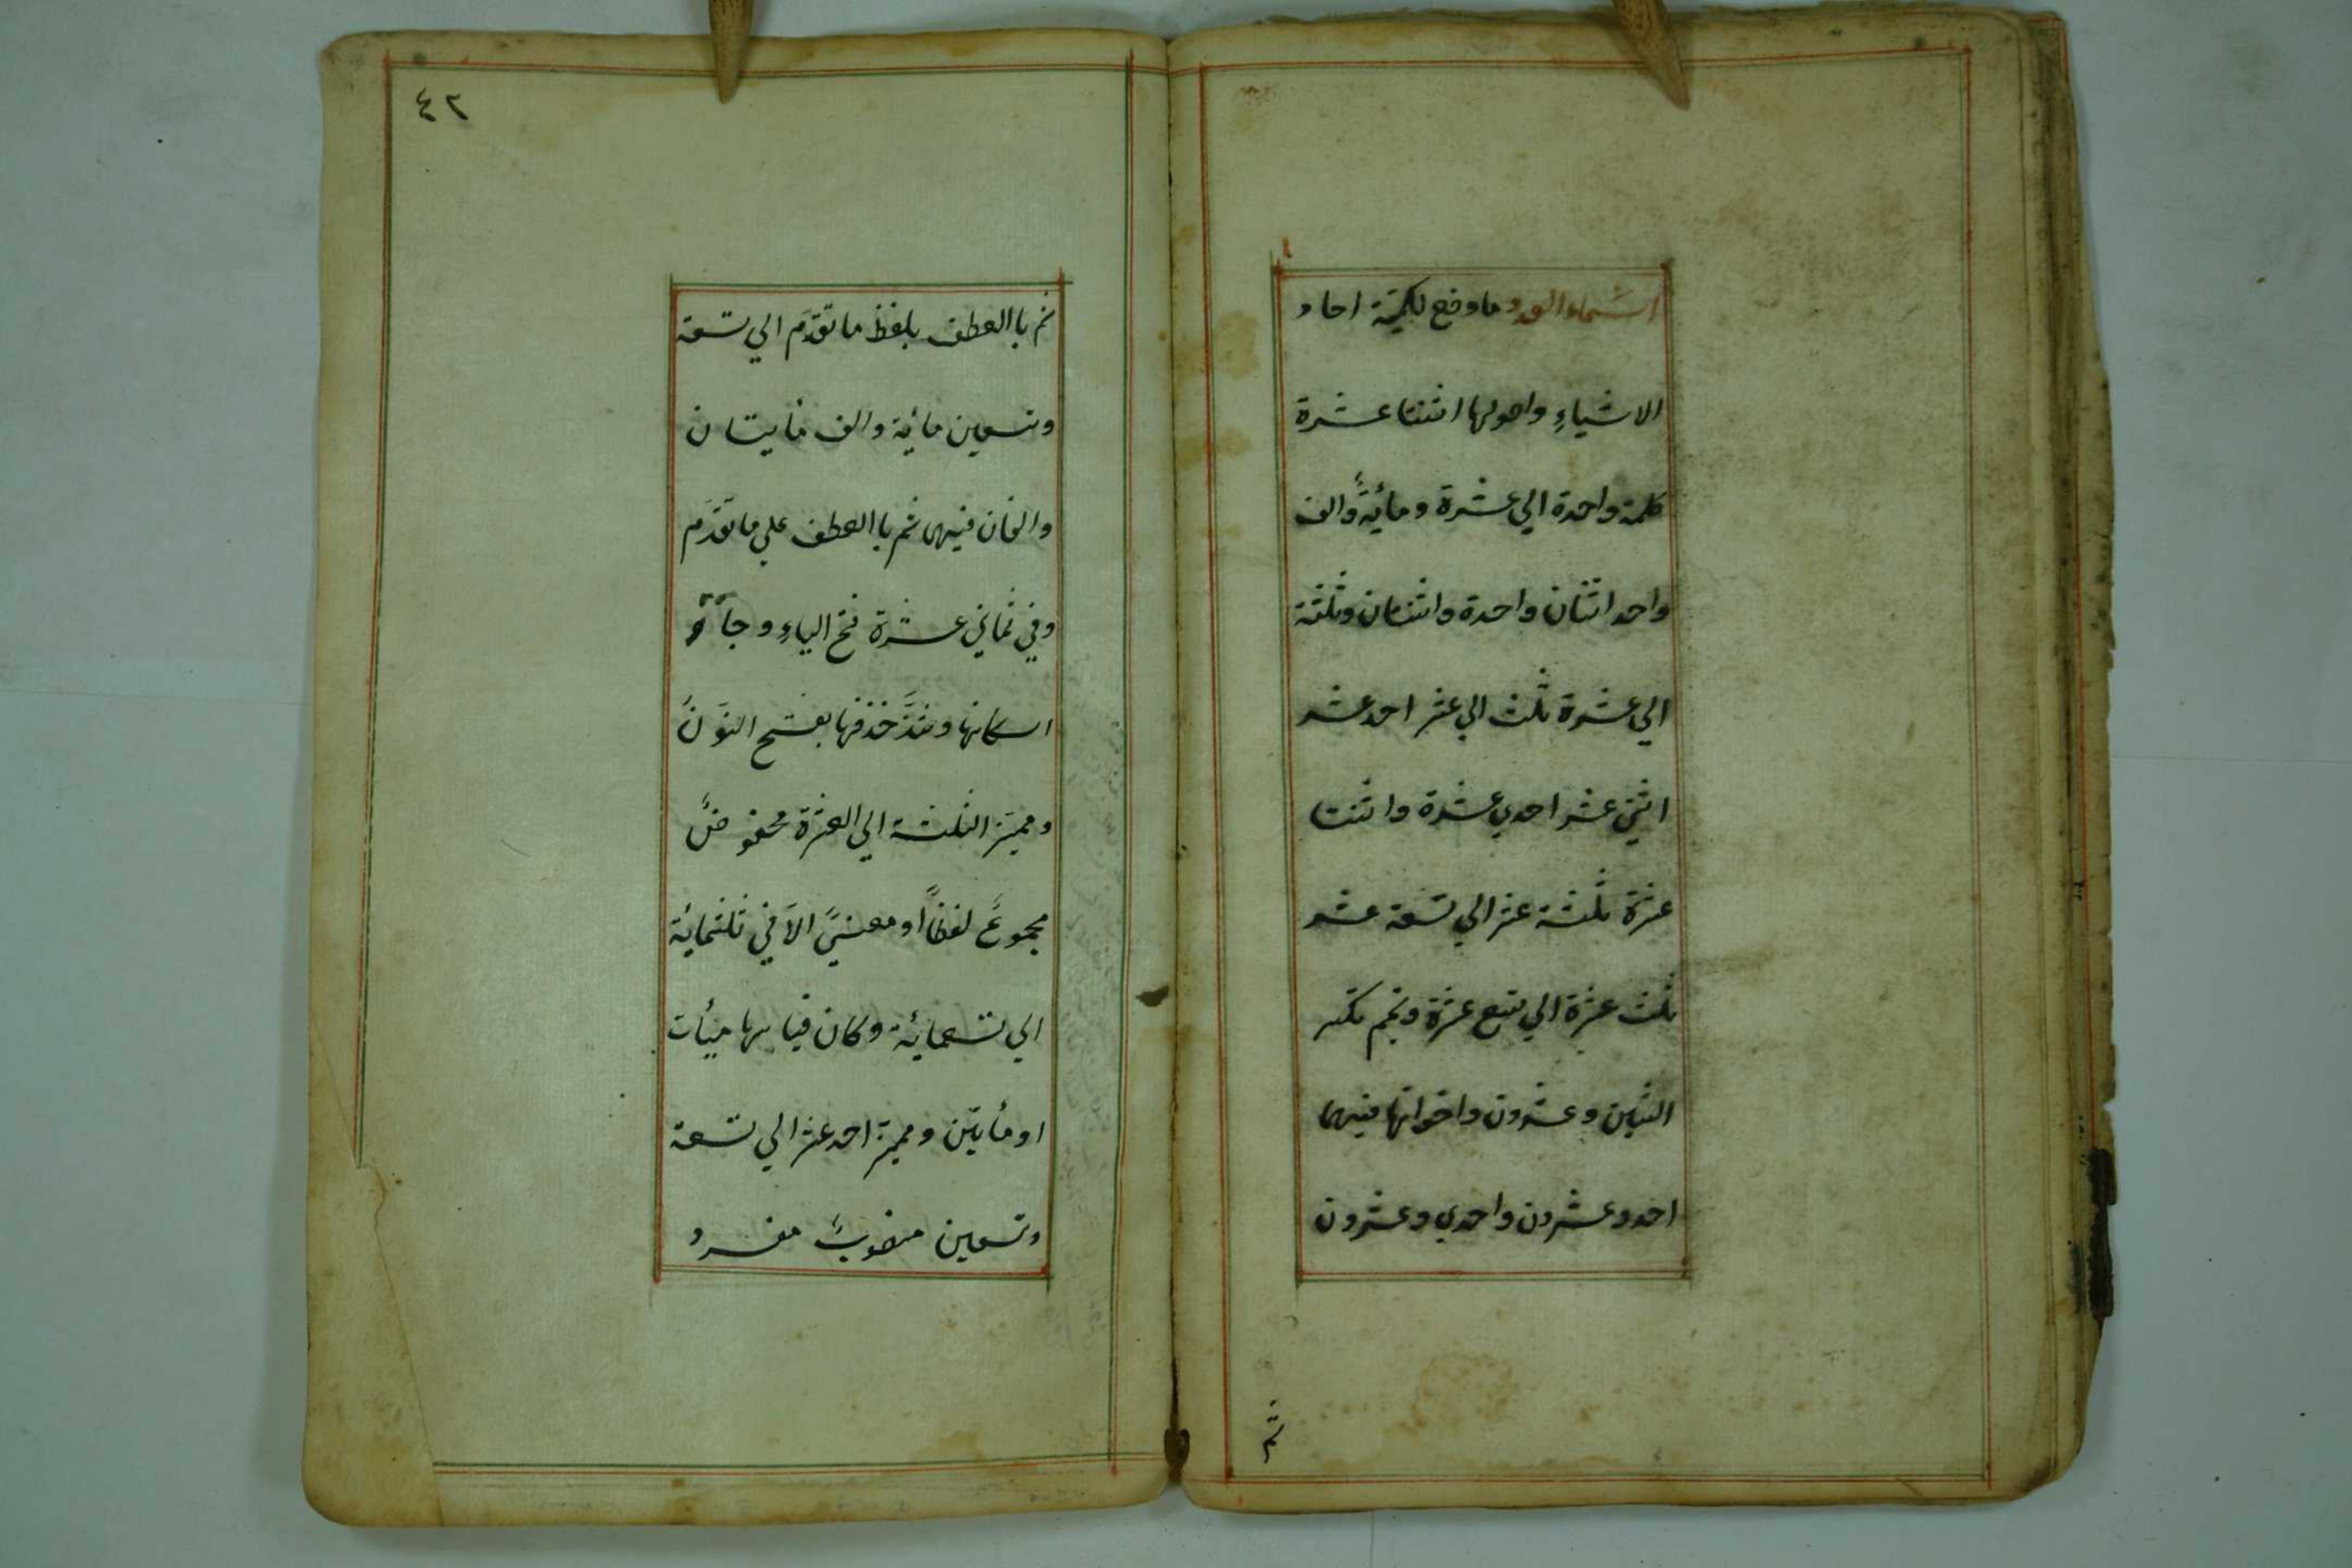 اسماء العدد ما وضع لكميّة احاد
الاشياءِ واصولها اثنتا عشرة
كلمة واحدة الي عشرة ومائيةً والف
واحد اثنان واحدة واثنتان وثلثة
الي عشرة ثلث الي عشر احد عشر
اثني عشر احدي عشرة واثنتا
عشرة ثلثة عشر الي تسعة عشر
ثلث عشرة الي تسع عشرة وتميم تكسر
الشين وعشرون واخواتها فيهما
احد وعشرون واحدي وعشرون
ثم
٤٢
ثم باالعطف بلفظ ما تقدّم الي تسعة
وتسعين مائية والف مأيتان
والفان فيهما ثم باالعطف علي ما تقدّم
وفي ثماني عشرة فتح الياءِ وجاء
اسكانها وشذّ حذفها بفتح النون
ومميّز الثلثة الي العشرة مخفوضٌ
مجموعٌ لفظاً او معنيً الاّ في ثلثمائية
الي تسعمائية وكان قياسها ميأت
او مأيتين ومميز احد عشر الي تسعة
وتسعين منصوبٌ مفرد